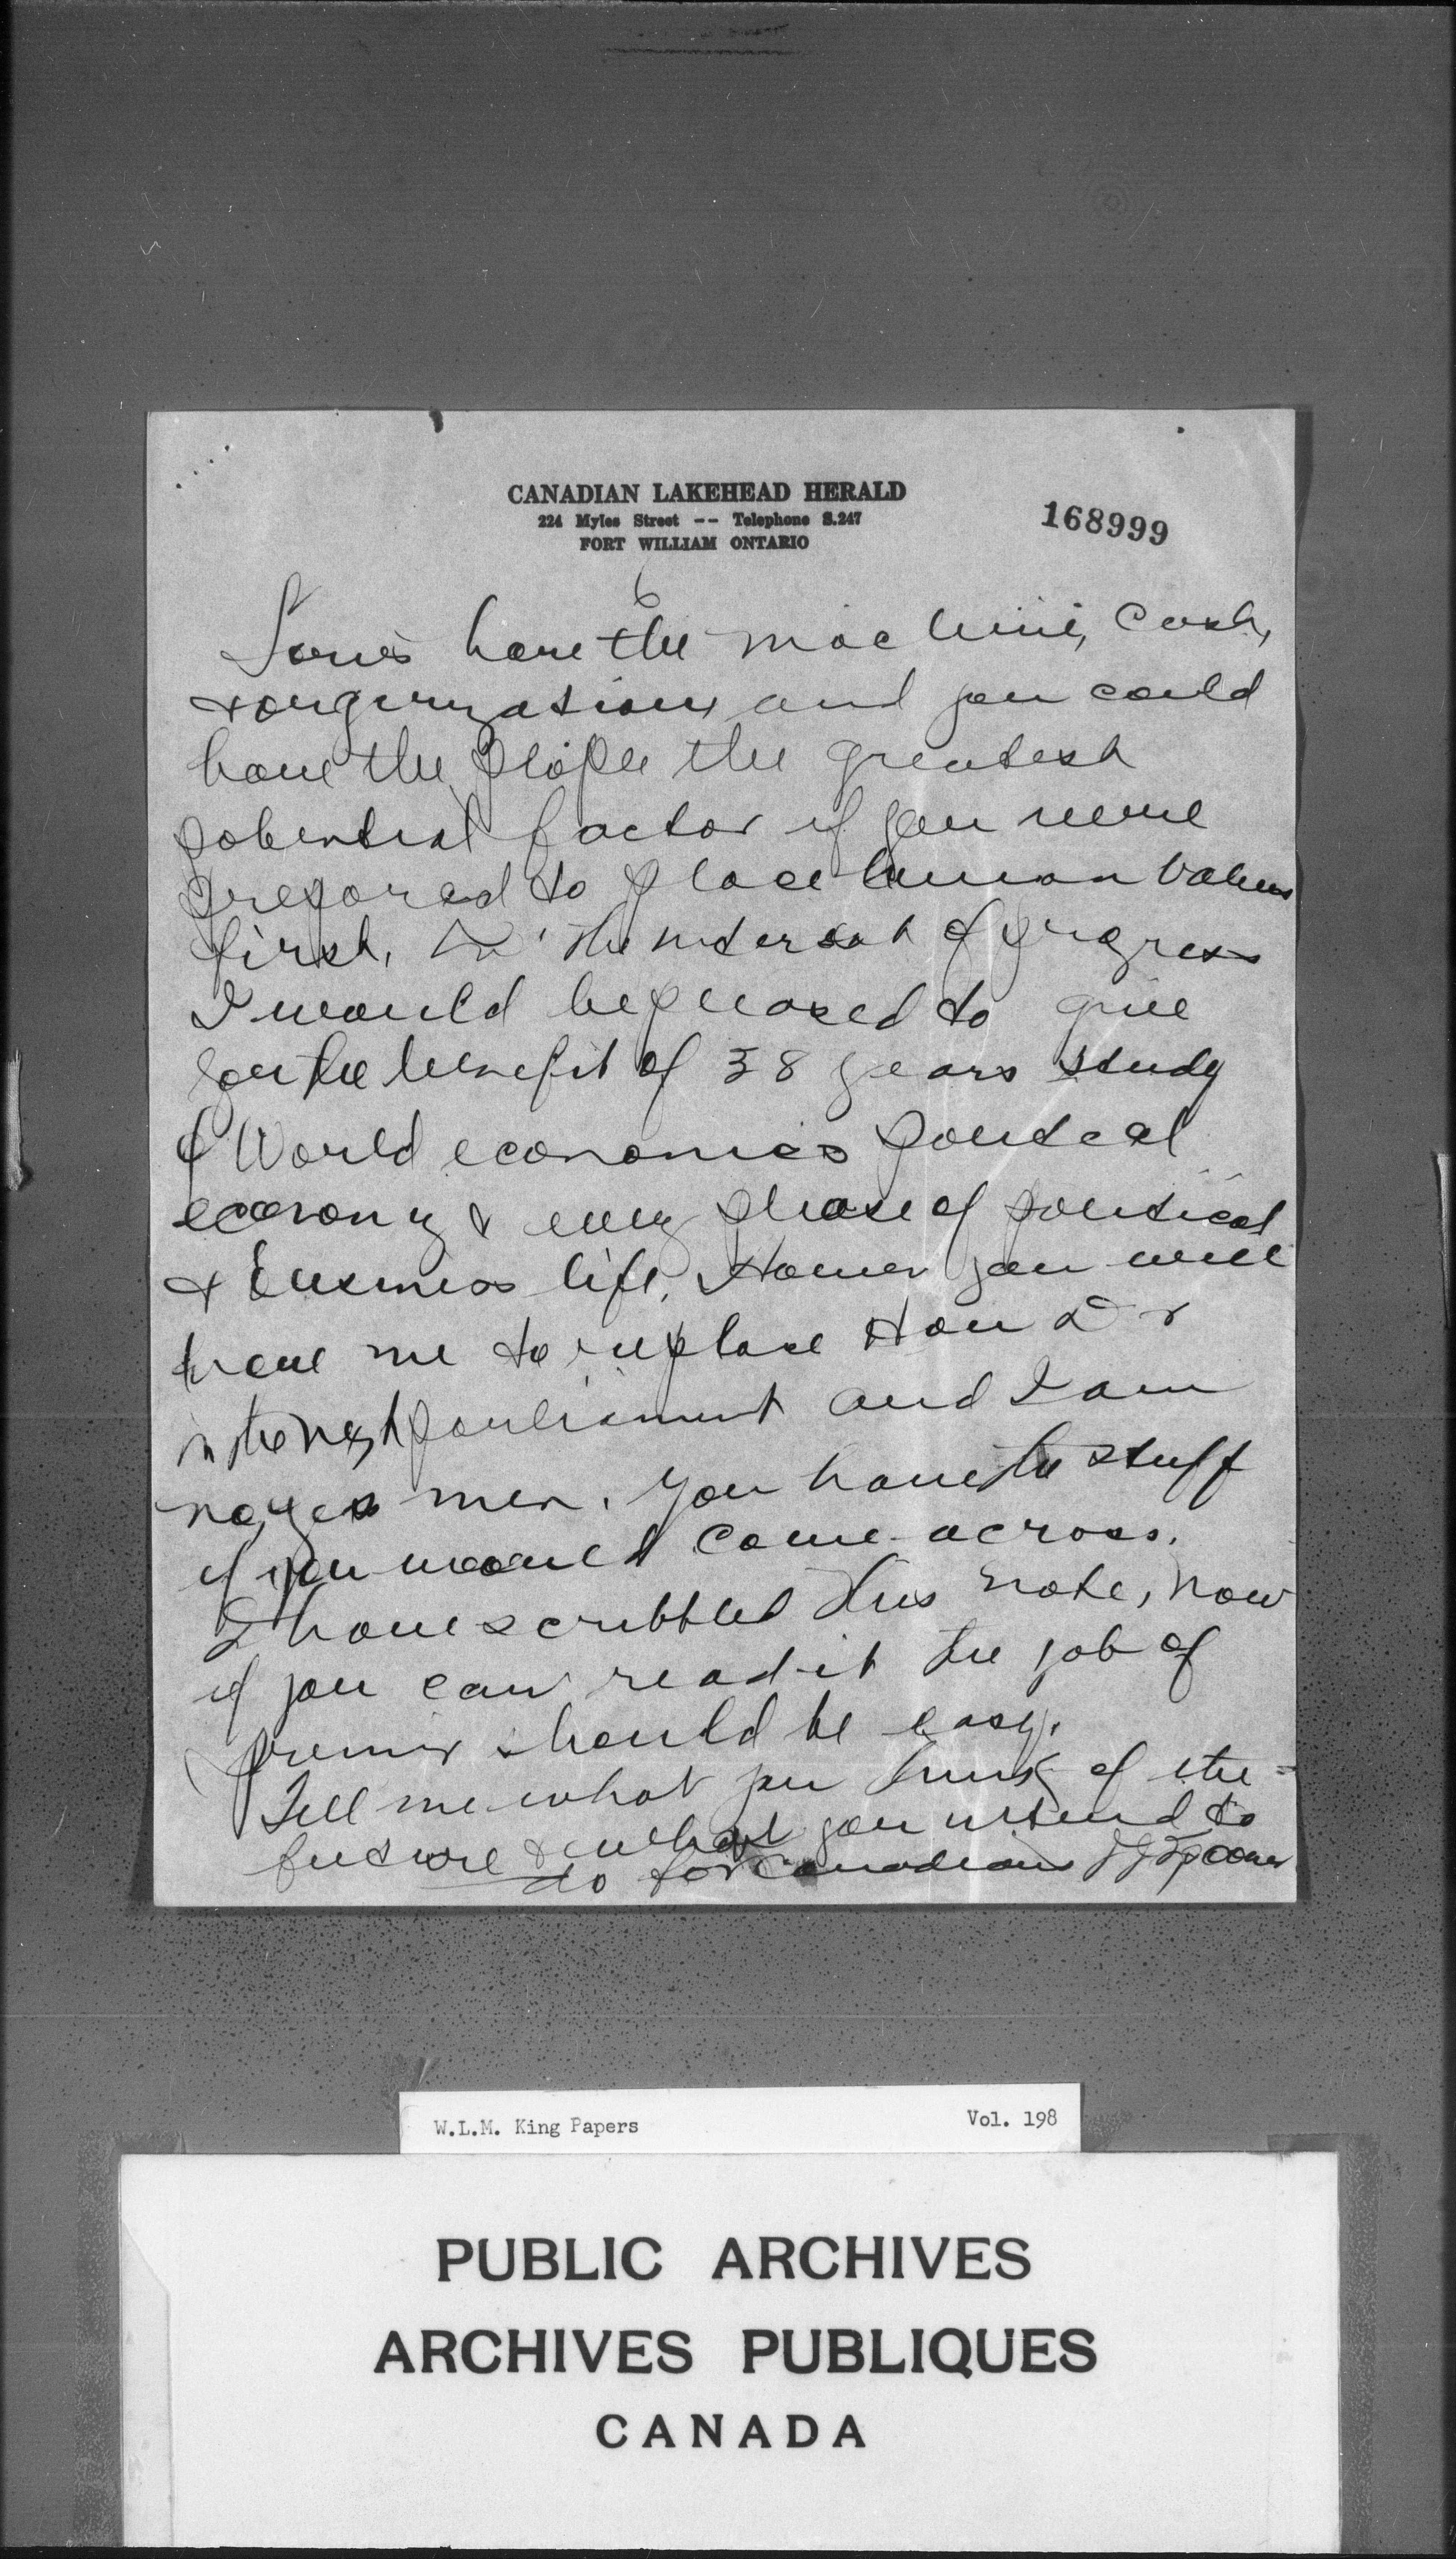 CANADIAN LAKEHEAD HERALD
224 Myles Street -- Telephone S.247
FORT WILLIAM ONTARIO
168999
6
Tories have the machine, Cash,
& organization and you could
have the people the greatest
potential factor if you were
prepared to place human values
first. In the interest of progress
I would be pleased to give
you the benefit of 38 years study
of World economics political
economy & every phase of political
& business life. However you will
have me to replace Hon Dr
in the next parliament and I am
no yes man. You have the stuff
if you would come across.
I have scribbled this note, now
if you can read it the job of
premier should be easy.
Tell me what you think of the
future & what you intend to
do for Canadians J J Spooner
W.L.M. King Papers
Vol. 198
PUBLIC ARCHIVES
ARCHIVES PUBLIQUES
CANADA